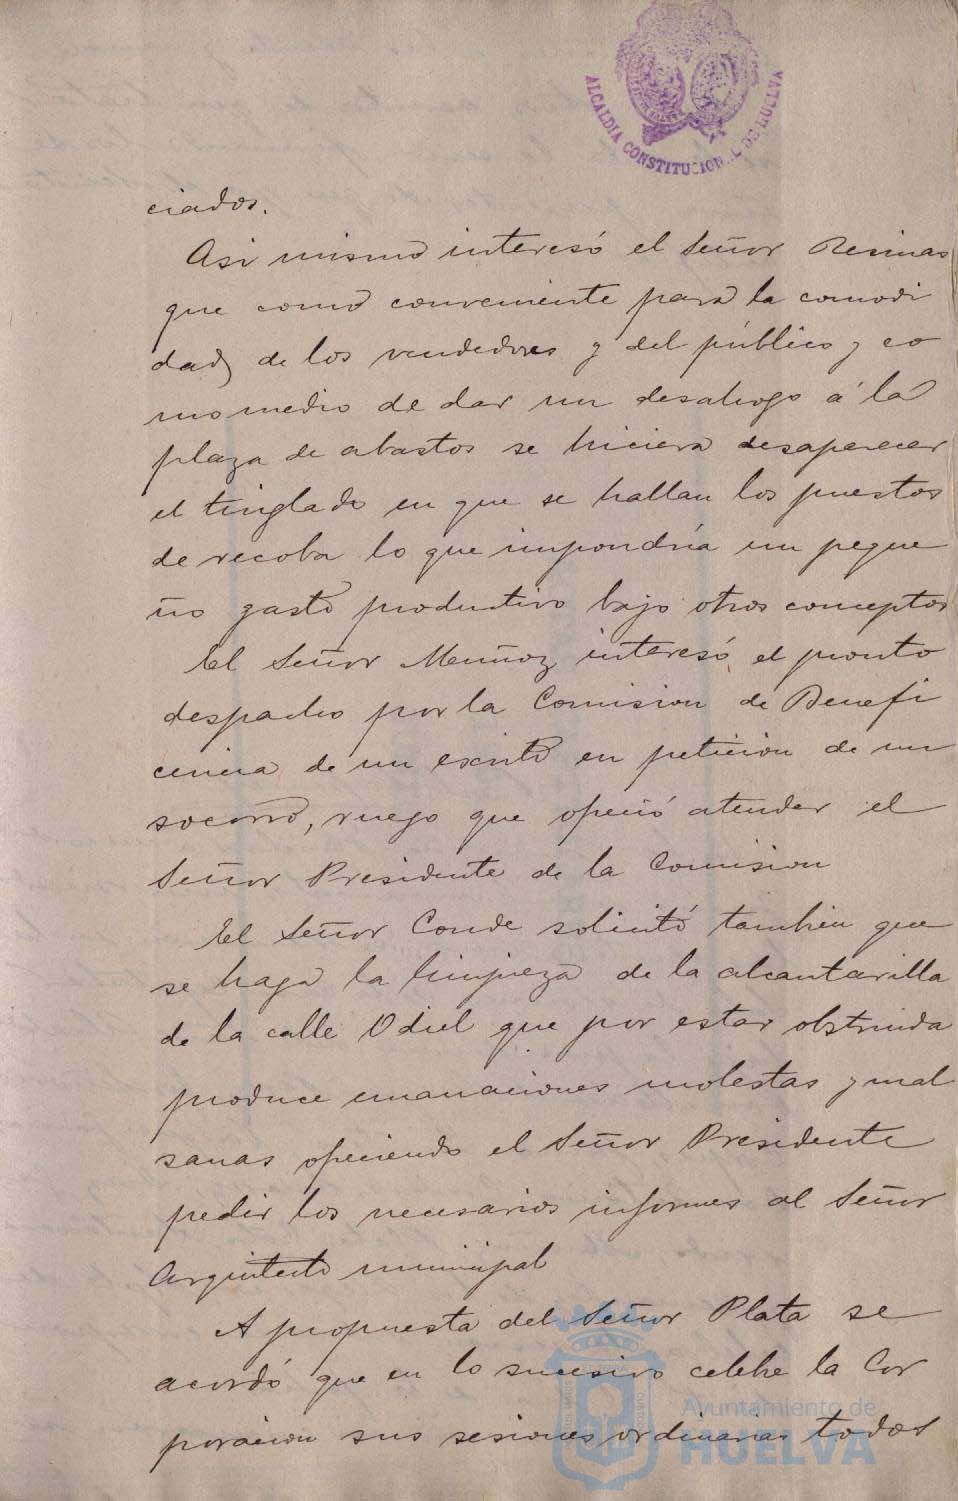 ALCALDIA CONSTITUCIONAL DE HUELVA
ciados.
Asi mismo interesó el Señor Resinas
que como conveniente para la comodi
dad de los vendedores y del público y co
mo medio de dar un desahogo á la
plaza de abastos se hiciera desaparecer
el tinglado en que se hallan los puestos
de recoba lo que impondría un peque
ño gasto productivo bajo otros conceptos
El Señor Muñoz interesó el pronto
despacho por la Comision de Benefi
cencia de un escrito en petición de un
socorro, ruego que ofreció atender el
Señor Presidente de la Comision
El Señor Conde solicitó tambien que
se haga la limpieza de la alcantarilla
de la calle Odiel que por estar obstruida
produce emanaciones molestas y mal
sanas ofreciendo el Señor Presidente
pedir los necesarios informes al Señor
Arquitecto municipal
A propuesta del Señor Plata se
acordó que en lo sucesivo celebre la Cor
poracion sus sesiones ordinarias todos
Ayuntamiento de
HUELVA